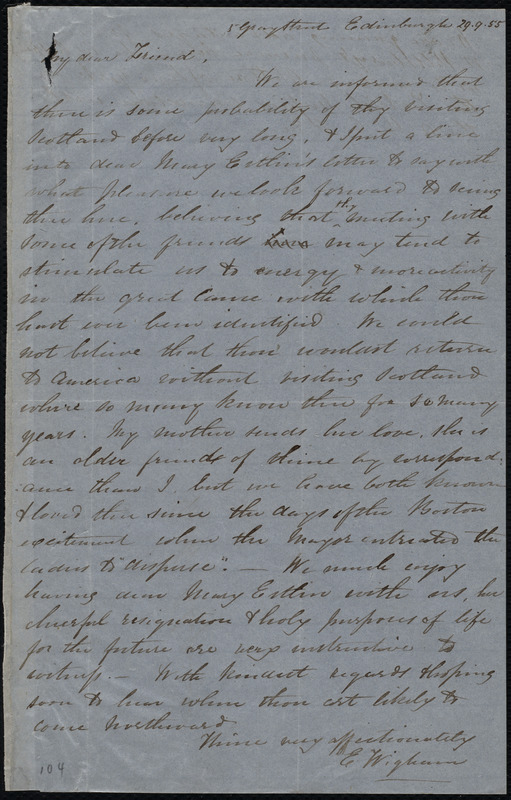 5 Gray Street Edinburgh 29.9.55
My dear Friend,
We are informed that
there is some probability of thy visiting
Scotland before very long, & I put a line
into dear Mary Estlin's letter to say with
what pleasure we look forward to seeing
thee here, believing that thy meeting with
some of the friends here may tend to
stimulate us to energy & more activity
in the great cause with which thou
hast ever been identified We could
not believe that thou wouldst return
to America without visiting Scotland
where so many know thee for so many
years. My mother sends her love, she is
an older friend of thine by correspond-
ance than I but we have both known
& loved thee since the days of the Boston
excitement when the Mayor entreated the
ladies to "disperse". — We much enjoy
having dear Mary Estlin with us, her
cheerful resignation & holy purposes of life
for the future are very instructive to
witness. — With kindest regards & hoping
soon to hear when thou art likely to
come Northward
Thine very affectionately
E Wigham
104